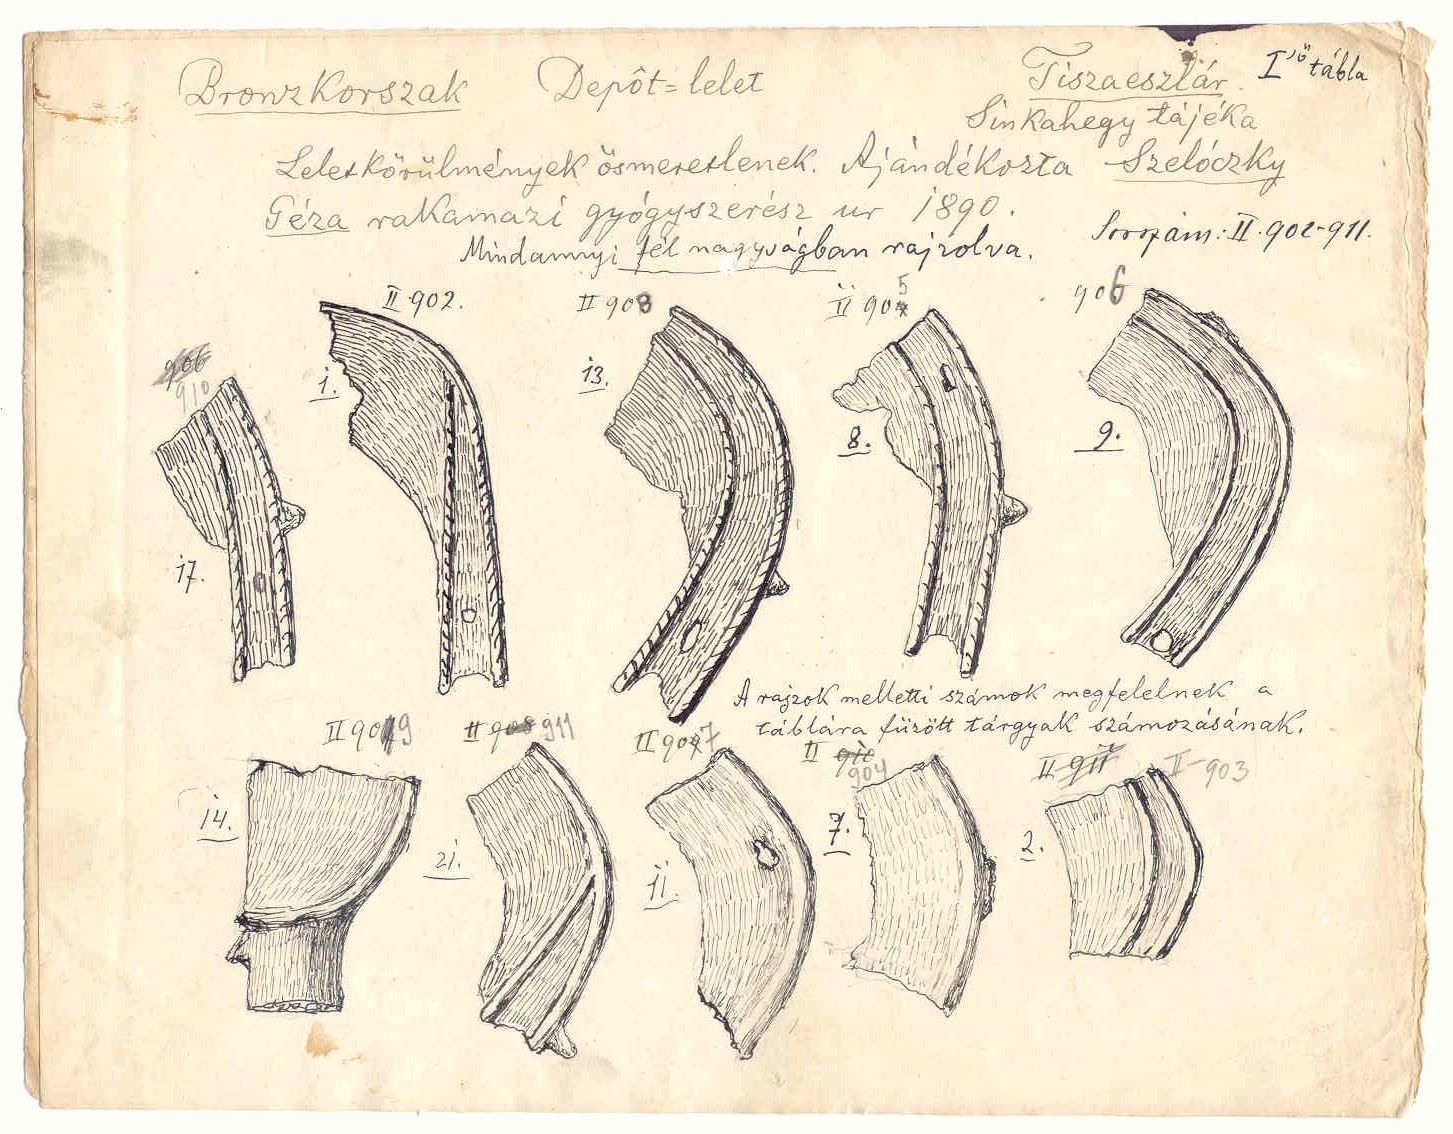 Bronzkorszak Depôt=lelet Tiszaeszlár. Iső tábla
Sinkahegy tájéka
Leletkörülmények ösmeretlenek. Ajándékozta Szelóczky
Géza rakamazi gyógyszerész ur 1890.
Sorszám: II. 902-911.
Mindannyi fél nagyságban rajzolva.
II 902.
II 908
II 905
906
910
1.
13.
8.
9.
17.
A rajzok melletti számok megfelelnek a
táblára füzött tárgyak számozásának.
II 909
II 911
II 907
II 904
II-903
14.
21.
11.
7.
2.